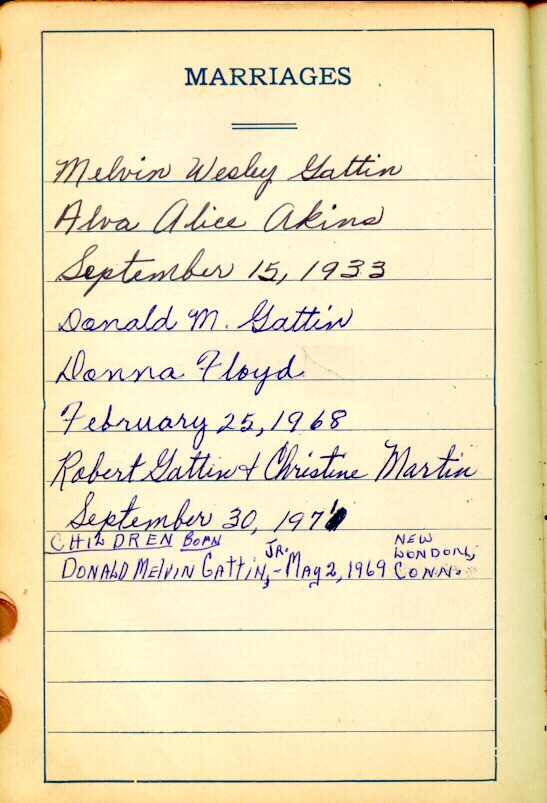 MARRIAGES
Melvin Wesley Gattin
Alva Alice Akins
September 15, 1933
Donald M. Gattin
Donna Floyd
February 25, 1968
Robert Gattin & Christine Martin
September 30, 1971
CHILDREN BORN
DONALD MELVIN GATTIN, JR. - MAY 2, 1969 NEW LONDON, CONN.